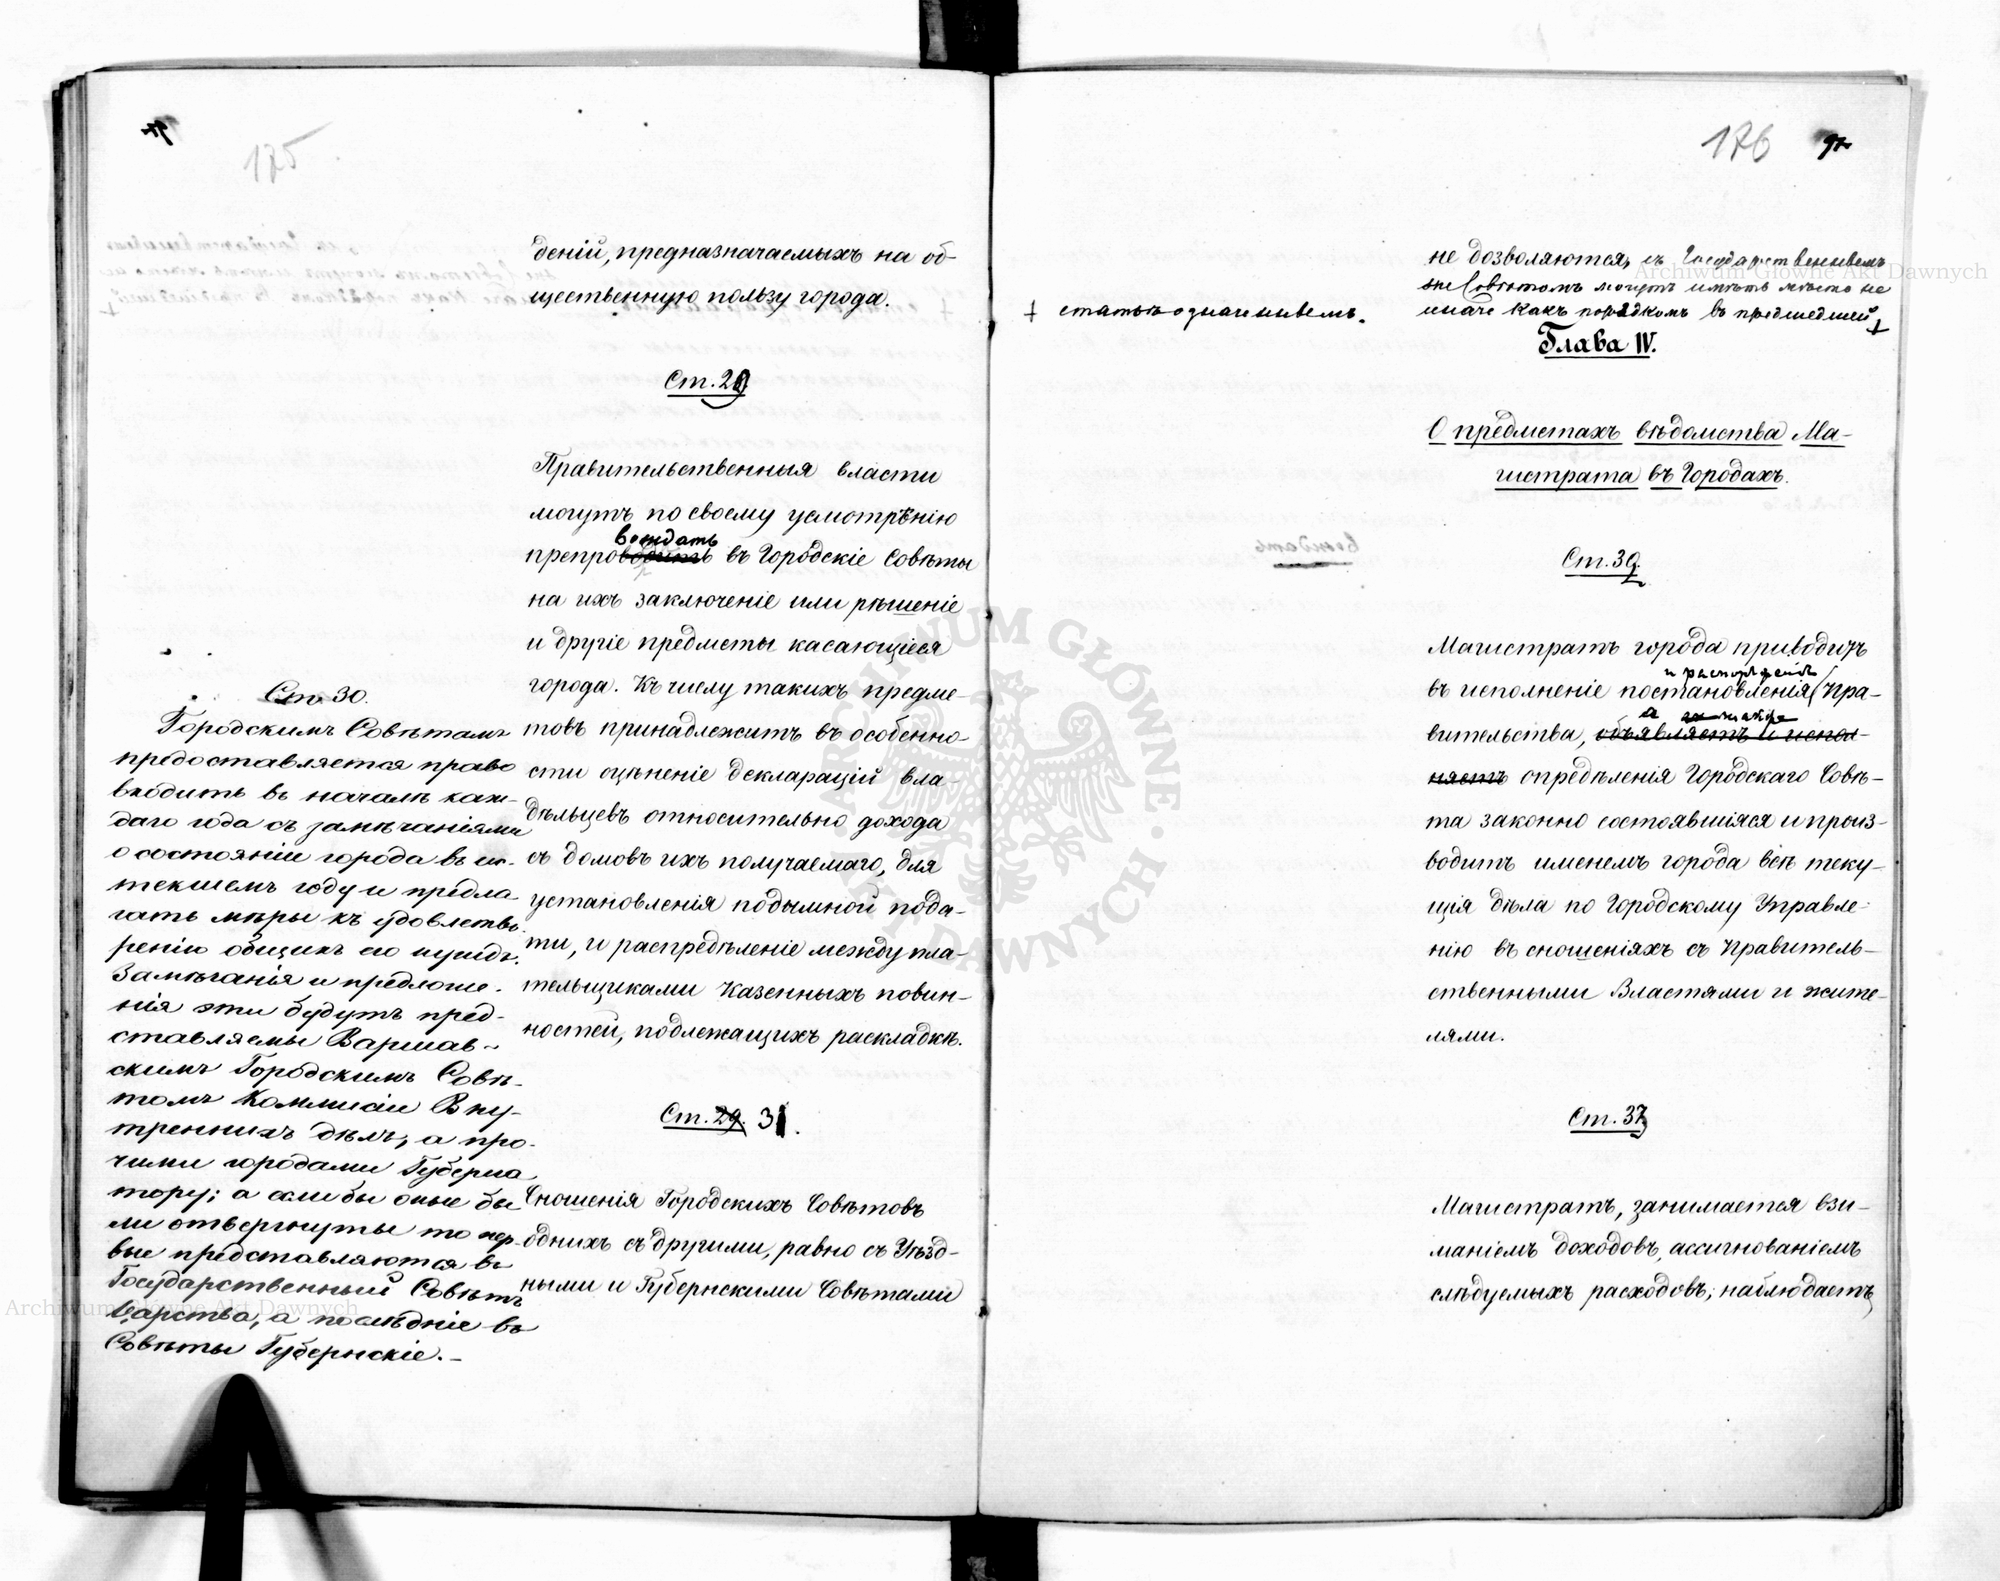 175
деній, предназначаемыхъ на об-
щественную пользу города.
Ст. 29
Правительственныя власти
могутъ по своему усмотрѣнію
препровождать въ Городскіе Совѣты
на ихъ заключеніе или рѣшеніе
и другіе предметы касающіеся
города. Къ числу такихъ предме-
товъ принадлежитъ въ особенно-
сти оцѣненіе деклараций вла-
дѣльцевъ относительно дохода
съ домовъ ихъ получаемаго, для
установленія подымной пода-
ти, и распредѣленіе между пла-
тельщиками казенныхъ повин-
ностей, подлежащихъ раскладкѣ.
Ст. 29. 31.
Сношенія Городскихъ Совѣтовъ
однихъ съ другими, равно съ Уѣзд-
ными и Губернскими Совѣтами
Ст. 30.
Городскимъ Совѣтамъ
предоставляется право
входить въ началѣ каж-
даго года съ замѣчаніями
о состояніи города въ ис-
текшемъ году и предла-
гать мѣры къ удовлетво-
ренію общихъ его нуждъ.
Замѣчанія и предложе-
нія эти будутъ пред-
ставляемы Варшав-
скимъ Городскимъ Совѣ-
томъ Коммисіи Вну-
треннихъ дѣлъ, а про-
чими городами Губерна
тору; а если бы оные бы
ли отвергнуты то пер-
вые представляются въ
Государственный Совѣтъ
Царства, а послѣдніе въ
Совѣты Губернскіе.
176
97
не дозволяются, съ Государственнымъ
же Совѣтомъ могутъ имѣть мѣсто не
иначе какъ порядкомъ въ предшедшей +
+ статьѣ означеннымъ.
Глава IV.
О предметахъ вѣдомства Ма-
гистрата въ Городахъ.
Ст. 39.
Магистратъ города приводитъ
и распоряженія
въ исполненіе постановленія Пра-
а также
вительства, объявляетъ и испол-
няетъ опредѣленія Городскаго Совѣ-
та законно состоявшіяся и произ-
водитъ именемъ города всѣ теку-
щія дѣла по Городскому Управле-
нію въ сношеніяхъ съ Правитель-
ственными Властями и жите-
лями.
Ст. 37
Магистратъ, занимается взи-
маніемъ доходовъ, ассигнованіемъ
слѣдуемыхъ расходовъ; наблюдаетъ
Archiwum Główne Akt Dawnych
Archiwum Główne Akt Dawnych
ARCHIWUM GŁÓWNE AKT DAWNYCH